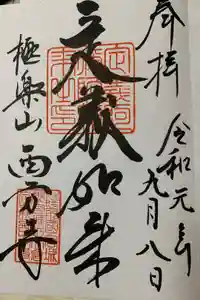 奉拝
令和元年九月八日
定義如来
極楽山 西方寺